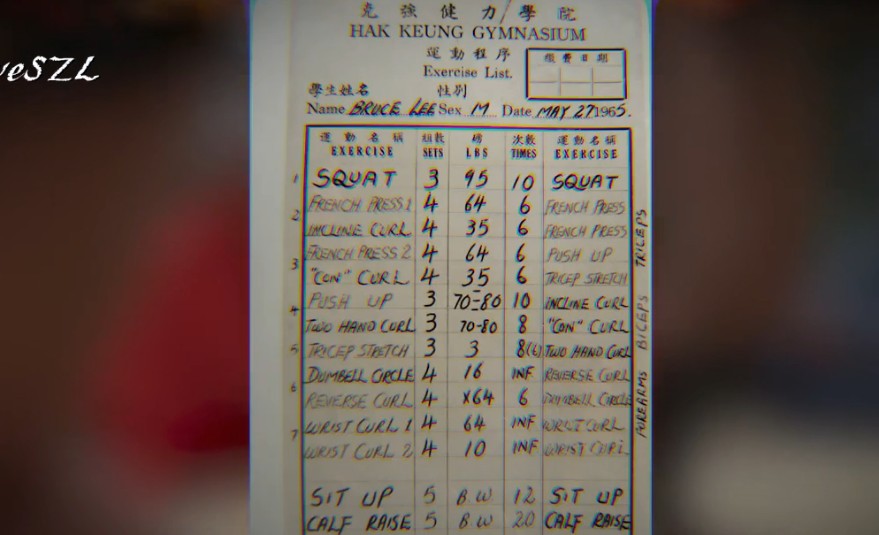 克強健力學院
HAK KEUNG GYMNASIUM
運動程序
Exercise List.
繳費日期
veSZL
學生姓名 性別
Name BRUCE LEE Sex M Date MAY 27 1965.
運動名稱 組數 磅 次數 運動名稱
EXERCISE SETS LBS TIMES EXERCISE
1 SQUAT 3 95 10 SQUAT
2 FRENCH PRESS 1 4 64 6 FRENCH PRESS
INCLINE CURL 4 35 6 FRENCH PRESS
3 FRENCH PRESS 2 4 64 6 PUSH UP
"CON" CURL 4 35 6 TRICEP STRETCH
4 PUSH UP 3 70-80 10 INCLINE CURL
TWO HAND CURL 3 70-80 8 "CON" CURL
5 TRICEP STRETCH 3 3 8(6) TWO HAND CURL
6 DUMBELL CIRCLE 4 16 INF REVERSE CURL
REVERSE CURL 4 x64 6 DUMBELL CIRCLE
7 WRIST CURL 1 4 64 INF WRIST CURL
WRIST CURL 2 4 10 INF WRIST CURL
SIT UP 5 B.W 12 SIT UP
CALF RAISE 5 B.W 20 CALF RAISE
TRICEPS
BICEPS
FOREARMS